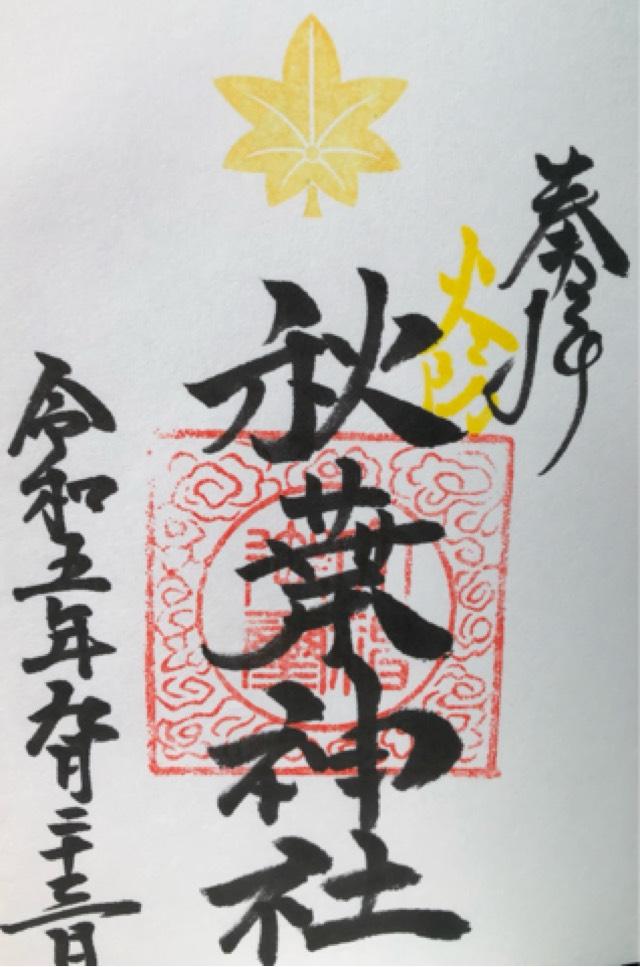 奉拝
火防
秋葉神社
令和五年九月二十三日